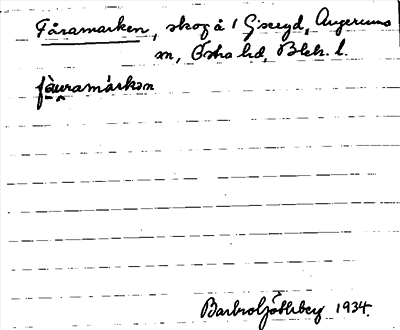 Fåramarken, skog å 1 Gisryd, Augerums
sn, Östra hd, Blek. l.
fàuramárkən
Barbro Götheberg 1934.